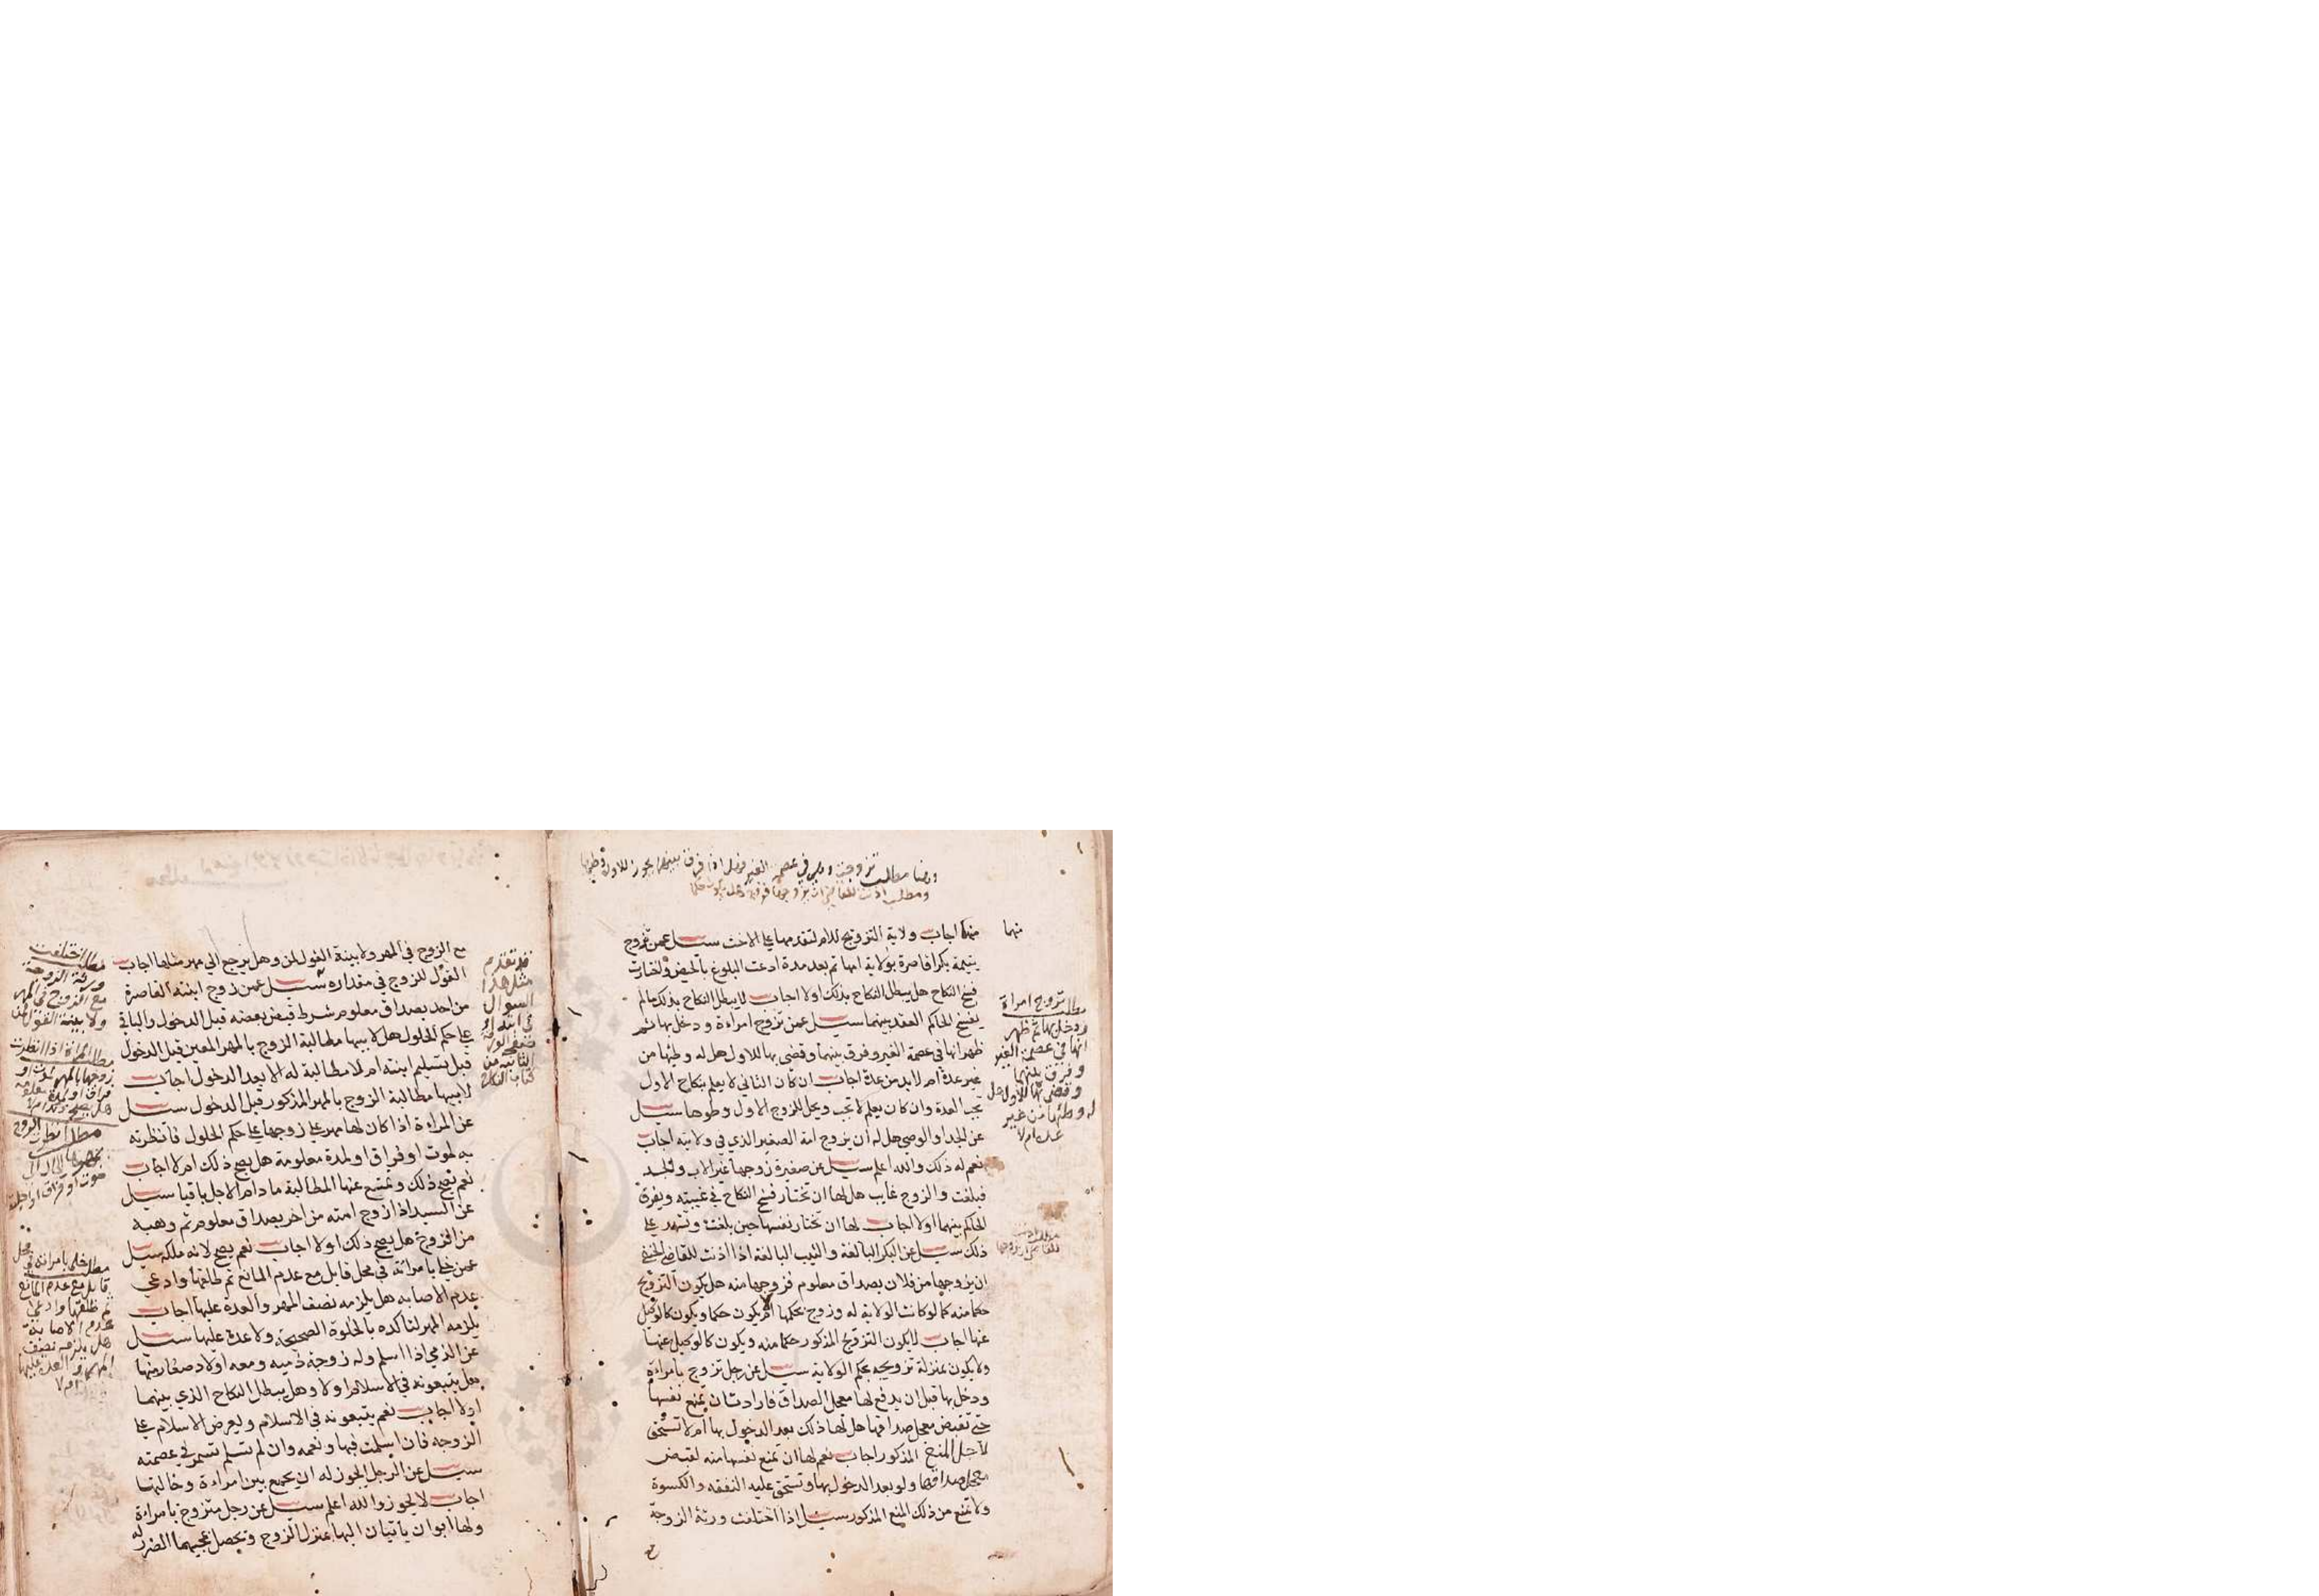 وهنا مطلب تزوجت وهي في عصمة الغير فهل اذا فرق بينهما يجوز للاول وطئها
ومطلب اذنت للقاضي ان يزوجها
منهما
منهما اجاب ولاية التزويج للام لتقدمها على الاخت سيل عمن تزوج
يتيمة بكرا قاصرة بولاية امها ثم بعد مدة ادعت البلوغ بالحيض واختارت
فسخ النكاح هل يبطل النكاح بذلك اولا اجاب لا يبطل النكاح بذلك مالم
يفسخ الحاكم العقد بينهما سيل عمن تزوج امراءة ودخل بها ثم
ظهر انها في عصمة الغير وفرق بينهما وقضى بها للاول هل له وطئها من
غير عدة ام لابد من عدة اجاب ان كان الثاني لا يعلم بنكاح الاول
تجب العدة وان كان يعلم لا تجب ويحل للزوج الاول وطوها سيل
عن الجد او الوصي هل له ان يزوج امة الصغير الذي في ولايته اجاب
نعم له ذلك والله اعلم سيل عن صغيرة زوجها غير الاب والجد
فبلغت والزوج غايب هل لها ان تختار فسخ النكاح في غيبته ويفرق
الحاكم بينهما اولا اجاب لها ان تختار نفسها حين بلغت وتشهد على
ذلك سيل عن البكر البالغة والثيب البالغة اذا اذنت للقاضي الحنفي
ان يزوجها من فلان بصداق معلوم فزوجها منه هل يكون التزويج
حكما منه كما لو كانت الولاية له وزوج بحكمها ام لا يكون حكما ويكون كالوكيل
عنها اجاب لا يكون التزويج المذكور حكما منه ويكون كالوكيل عنها
ولا يكون بمنزلة تزويجه بحكم الولاية سيل عن رجل تزوج بامراءة
ودخل بها قبل ان يدفع لها معجل الصداق فارادت ان تمنع نفسها
حتى تقبض معجل صداقها هل لها ذلك بعد الدخول بها ام لا تستحق
لاجل المنع المذكور اجاب نعم لها ان تمنع نفسها منه لقبض
معجل صداقها ولو بعد الدخول بها وتستحق عليه النفقه والكسوة
ولا تمنع من ذلك المنع المذكور سيل اذا اختلفت ورثة الزوجة
مطلب تزوج امراة
ودخل بها ثم ظهر
انها في عصمة الغير
وفرق بينهما
وقضى بها للاول هل
له وطئها من غير
عدة ام لا
مطلب اذنت
للقاضي ان يزوجها
مع الزوج في المهر ولا بينة القول لمن وهل يرجع الى مهر مثلها اجاب
القول للزوج في مقداره سيل عمن زوج ابنته القاصرة
من احد بصداق معلوم شرط قبض بعضه قبل الدخول والباقي
على حكم الحلول هل لابيها مطالبة الزوج بالمهر المعين قبل الدخول
قبل تسليم ابنته ام لا مطالبة له الا بعد الدخول اجاب
لابيها مطالبة الزوج بالمهر المذكور قبل الدخول سيل
عن المراءة اذا كان لها مهر على زوجها على حكم الحلول فانظرته
به لموت او فراق او لمدة معلومة هل يصح ذلك ام لا اجاب
نعم يصح ذلك وتمتنع عنها المطالبة مادام الاجل باقيا سيل
عن السيد اذا زوج امته من اخر بصداق معلوم ثم وهبه
من الزوج هل يصح ذلك اولا اجاب نعم يصح لانه ملكه سيل
عمن خلى بامراته في محل قابل مع عدم المانع ثم طلقها وادعى
عدم الاصابه هل يلزمه نصف المهر والعدة عليها اجاب
يلزمه المهر لتاكده بالخلوة الصحيحة ولا عدة عليها سيل
عن الذمي اذا اسلم وله زوجة ذميه ومعه اولاد صغار منها
هل يتبعونه في الاسلام اولا وهل يبطل النكاح الذي بينهما
اولا اجاب نعم يتبعونه في الاسلام ويعرض الاسلام على
الزوجه فان اسلمت فبها ونعمه وان لم تسلم تستمر في عصمته
سيل عن الرجل ايجوز له ان يجمع بين امراءة وخالتها
اجاب لا يجوز والله اعلم سيل عن رجل متزوج بامراءة
ولها ابوان ياتيان اليها بمنزل الزوج ويحصل بمجيهما الضرر له
قد تقدم
مثل هذا
السوال
في ابتداء
صفحة الورقة
الثانية من
كتاب النكاح
مطلب اختلفت
ورثة الزوجة
مع الزوج في المهر
ولا بينة القول لمن
مطلب المراة اذا انظرت
زوجها بالمهر لموت او
فراق او لمدة معلومة
هل يصح ذلك ام لا
مطلب انظرت الزوج
بمهرها الى
موت او فراق او اجل
مطلب خلى بامراته في محل
قابل مع عدم المانع
ثم طلقها وادعى
عدم الاصابة
هل يلزمه نصف
المهر والعدة عليها
ام لا